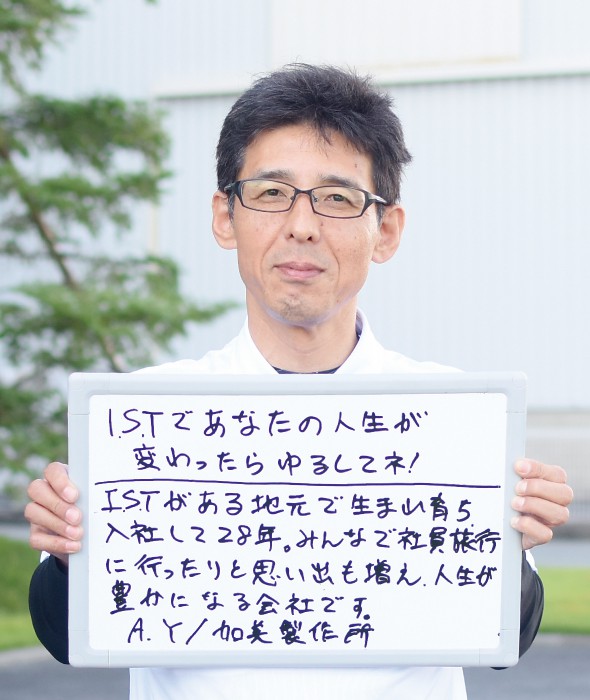 I.S.Tであなたの人生が
変わったらゆるしてネ!
I.S.Tがある地元で生まれ育ち
入社して28年。みんなで社員旅行
に行ったりと思い出も増え、人生が
豊かになる会社です。
A.Y/加美製作所